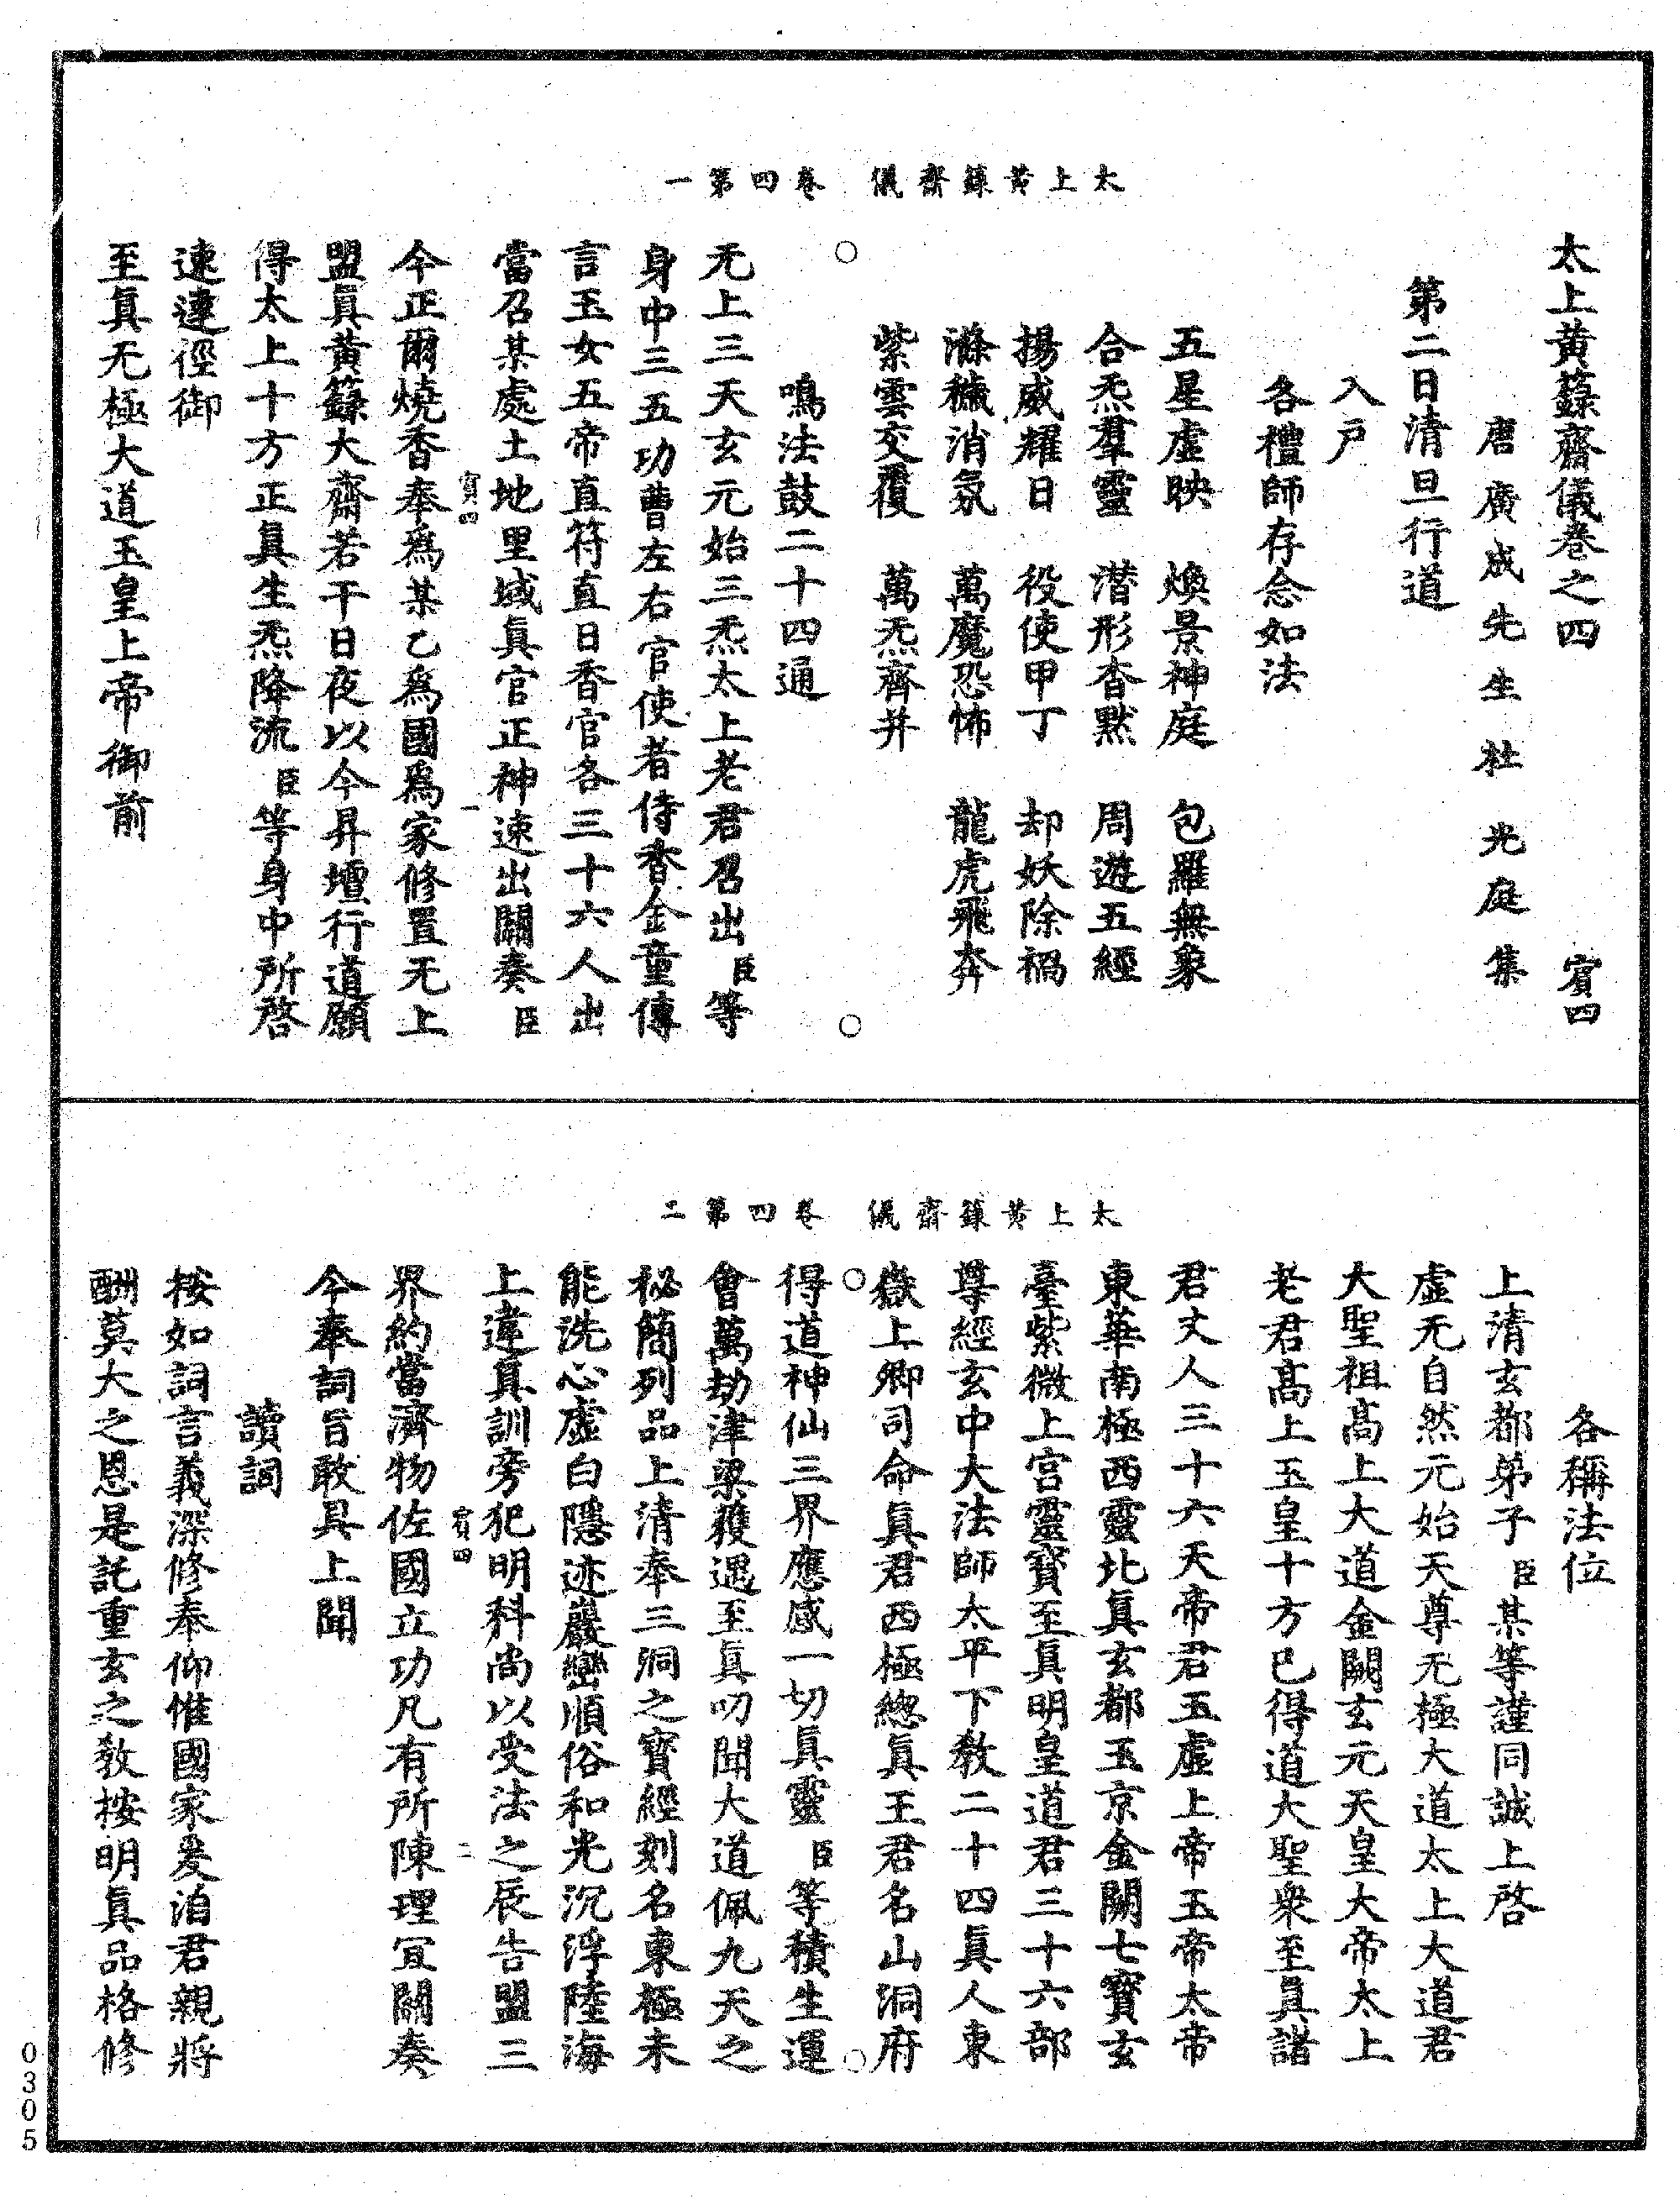 太上黃籙齋儀 卷四第一
太上黃籙齋儀卷之四 賓四
唐廣成先生杜光庭集
第二日清旦行道
入戶
各禮師存念如法
五星虛映 煥景神庭 包羅無象
合炁羣靈 潛形杳黙 周遊五經
揚威耀日 役使甲丁 却妖除禍
滌穢消氛 萬魔恐怖 龍虎飛奔
紫雲交覆 萬炁齊并
鳴法鼓二十四通
无上三天玄元始三炁太上老君召出臣等
身中三五功曹左右官使者侍香金童傳
言玉女五帝直符直日香官各三十六人出
當召某處土地里域眞官正神速出關奏臣
賓四 一
今正爾燒香奉爲某乙爲國爲家修置无上
盟眞黃籙大齋若干日夜以今昇壇行道願
得太上十方正眞生炁降流臣等身中所啓
速達徑御
至眞无極大道玉皇上帝御前
太上黃籙齋儀 卷四第二
各稱法位
上清玄都弟子臣某等謹同誠上啓
虛无自然元始天尊无極大道太上大道君
大聖祖高上大道金闕玄元天皇大帝太上
老君高上玉皇十方已得道大聖衆至眞諸
君丈人三十六天帝君五虛上帝玉帝太帝
東華南極西靈北眞玄都玉京金闕七寶玄
臺紫微上宮靈寶至眞明皇道君三十六部
尊經玄中大法師太平下教二十四眞人東
嶽上卿司命眞君西極緫眞王君名山洞府
得道神仙三界應感一切眞靈臣等積生運
會萬劫津梁獲遇至眞叨聞大道佩九天之
秘簡列品上清奉三洞之寶經刻名東極未
能洗心虛白隱迹巖巒順俗和光沉浮陸海
上違眞訓旁犯明科尚以受法之辰告盟三
賓四 二
界約當濟物佐國立功凡有所陳理宜關奏
今奉詞旨敢具上聞
讀詞
按如詞言義深修奉仰惟國家爰洎君親將
酬莫大之恩是託重玄之教按明眞品格修
0305